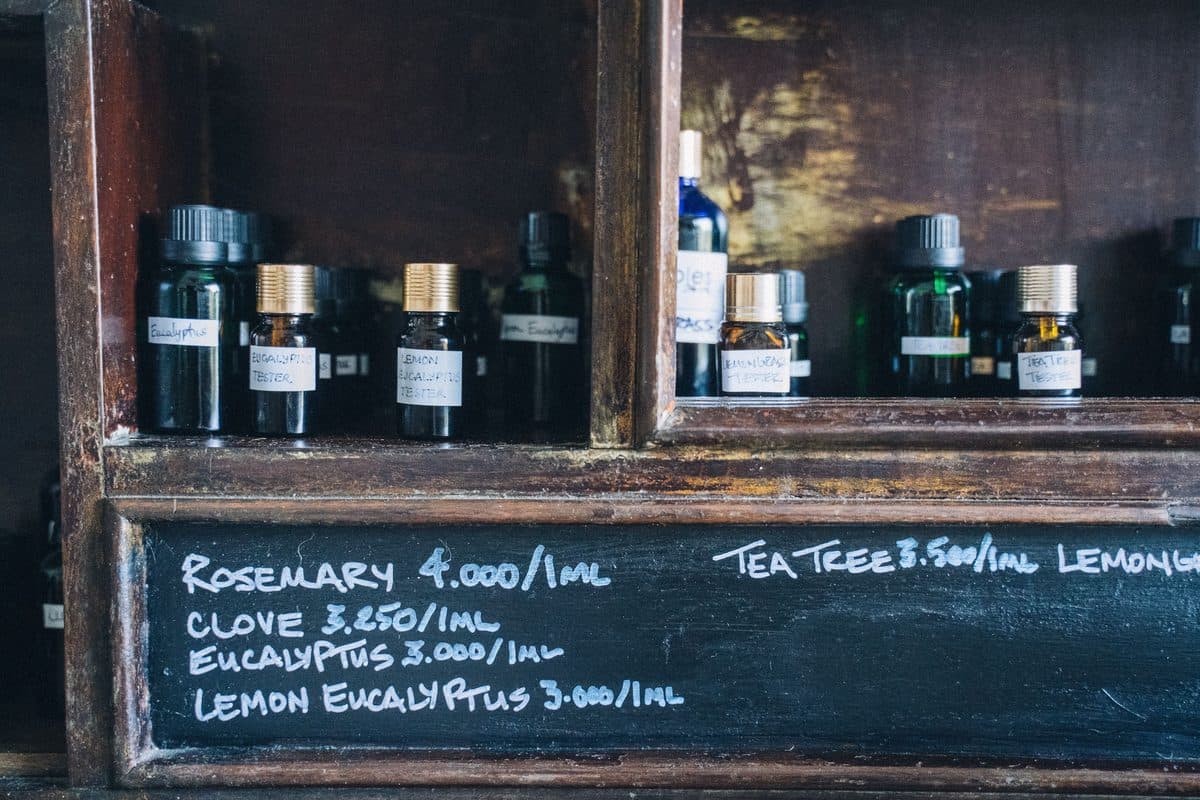 Eucalyptus
EUCALYPTUS
TESTER
LEMON
EUCALYPTUS
TESTER
Eucalyptus
LEMONGRASS
TESTER
TEA TREE
TEATREE
TESTER
ROSEMARY 4.000/1ML
CLOVE 3.250/1ML
EUCALYPTUS 3.000/1ML
LEMON EUCALYPTUS 3.000/1ML
TEA TREE 3.500/1ML LEMONG